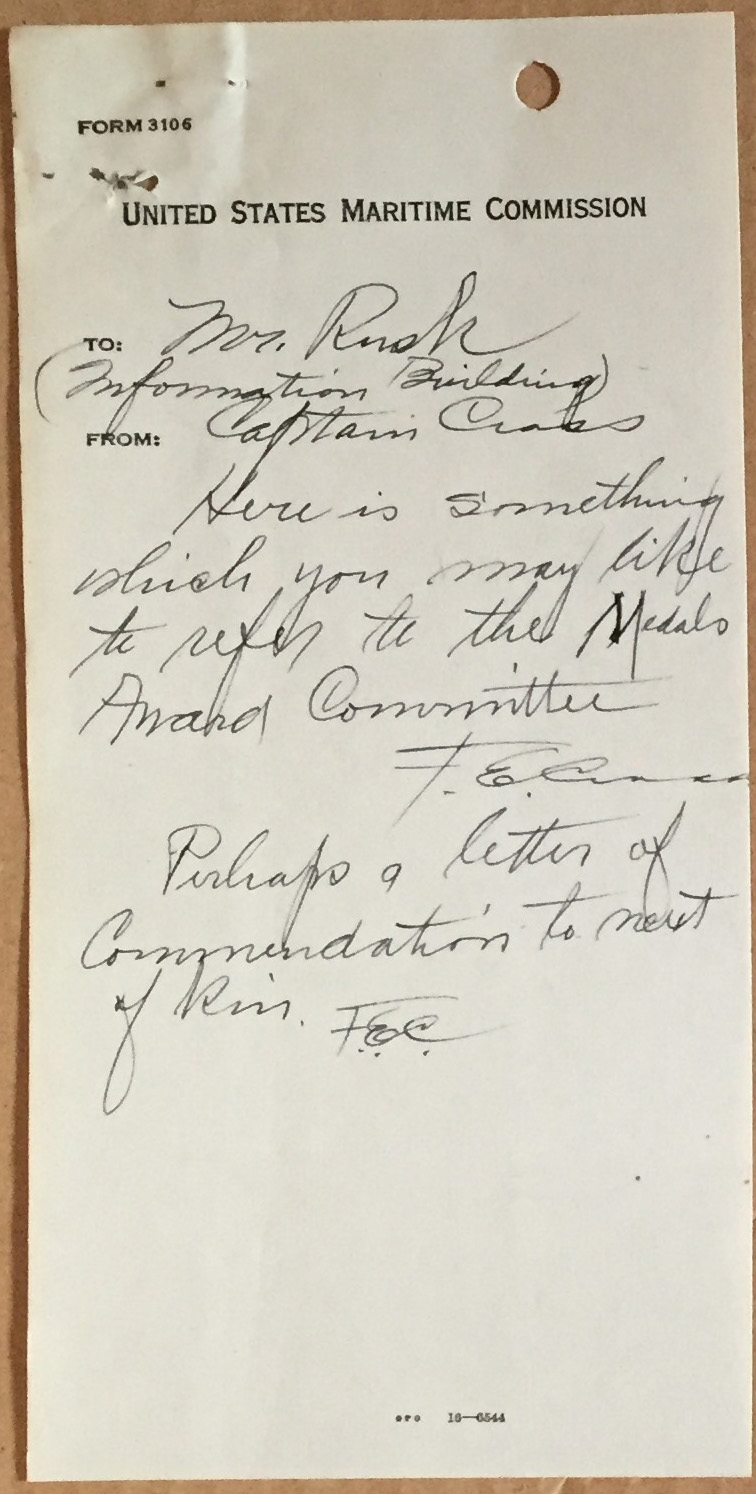 FORM 3106
UNITED STATES MARITIME COMMISSION
TO: Mr. Rusk
(Information Building)
FROM: Captain Cross
Here is something
which you may like
to refer to the Medals
Award Committee
F. E. Cross
Perhaps a letter of
Commendation to next
of kin. F.E.C.
GPO 16—6544